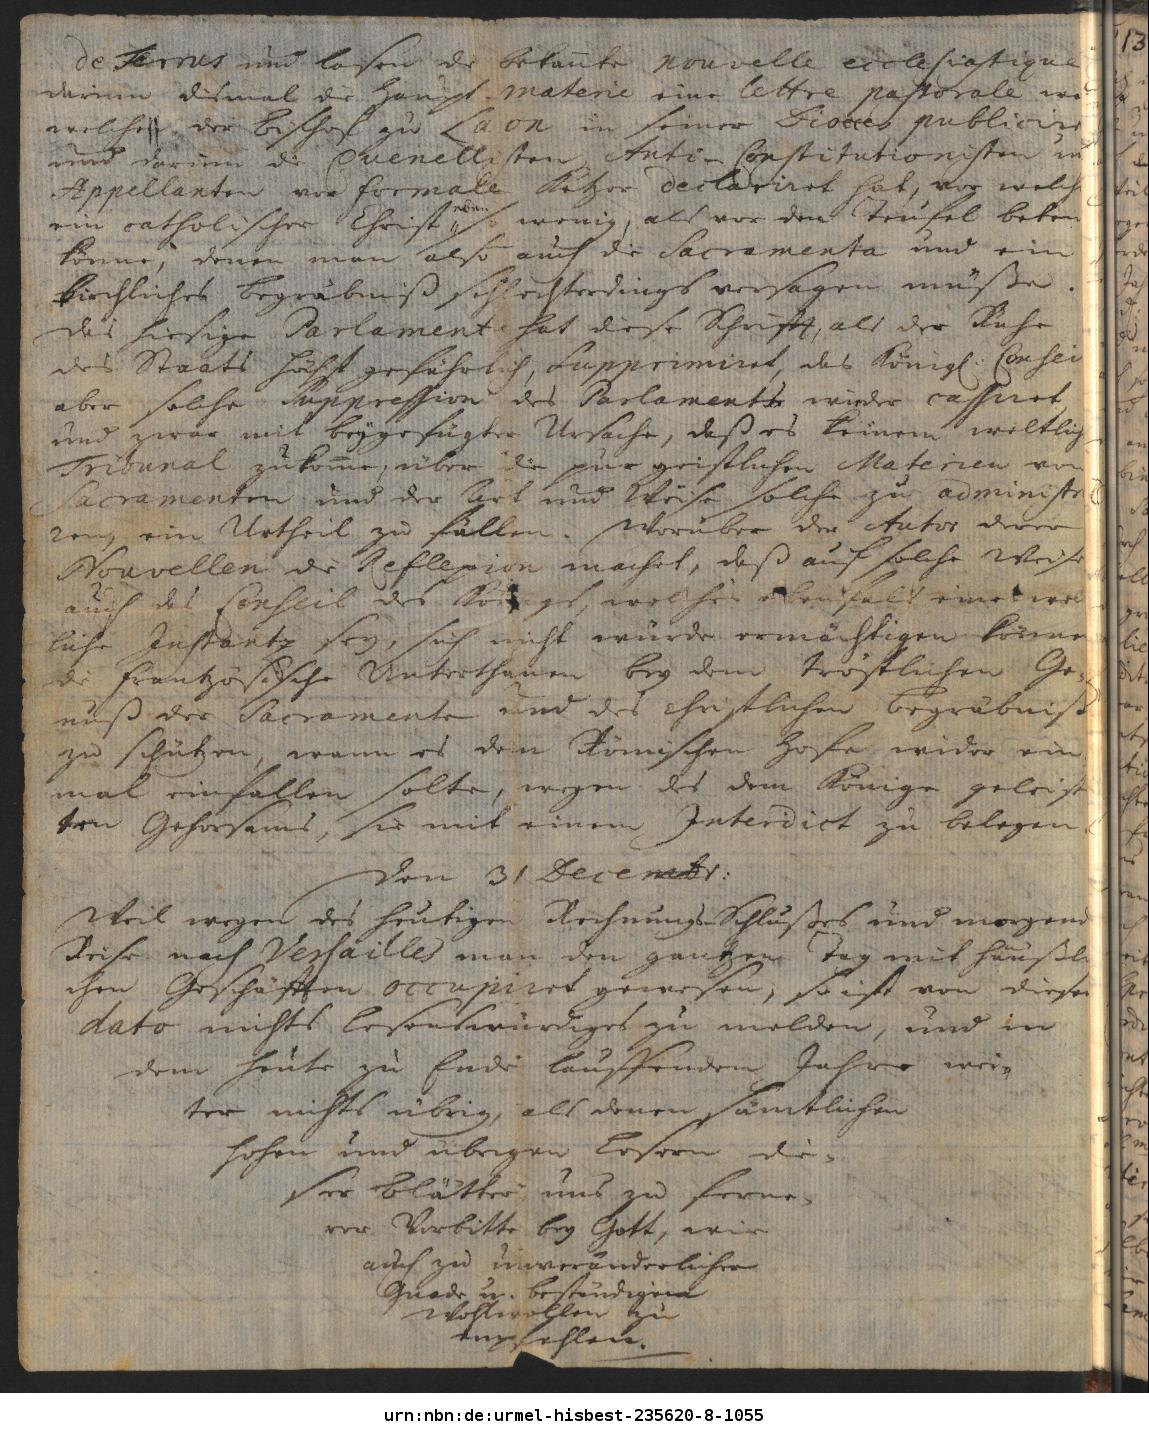 de Ferrus und lasen die bekañte nouvelle ecclesiastique
darinn dismal die Haupt-materie eine lettre pastorale
welche der Bischof zu Laon in seiner Dioeces publicire
und darinn die Quenellisten, Anti-Constitutionisten
Appellanten vor formale Ketzer declariret hat, vor welch
ein catholischer Christ eben so wenig, als vor den Teufel beten
könne, denen man also auch die Sacramenta und ein
kirchliches Begräbniß schlechterdings versagen müße.
Das hiesige Parlament hat diese Schrifft, als der Ruhe
des Staats höchst gefährlich, supprimiret, das Königl: Consei
aber solche Suppression des Parlaments wieder cassiret
und zwar mit beygefügter Ursache, daß es keinem weltlich
Tribunal zukom̃e, über die pur geistlichen Materien von
Sacramenten und der Art und Weise solche zu administri
ren, ein Urtheil zu fällen. Worüber der Autor derer
Nouvellen die Reflexion machet, daß auf solche Weise
auch das Conseil des Königs, welches ebenfals eine wel
liche Instantz sey, sich nicht würde ermächtigen könne
die frantzösische Unterthanen bey dem tröstlichen Ge-
nuß der Sacramente und des christlichen Begräbniß
zu schützen, wann es dem Römischen Hofe wider ein
mal einfallen solte, wegen des dem Könige geleist
ten Gehorsams, sie mit einem Interdict zu belegen.
Den 31 Decembr:
Weil wegen des heutigen Rechnungs-Schlußes und morgend
Reise nach Versailles man den gantzen Tag mit häußli
chen Geschäfften occupiret gewesen, so ist von diesem
dato nichts lesenswürdiges zu melden, und in
dem heute zu Ende lauffenden Jahre wei-
ter nichts übrig, als denen sämtlichen
hohen und übrigen Lesern die-
ser Blätter uns zu ferne-
rer Vorbitte bey Gott, wie
auch zu unveränderlicher
Gnade u. beständigem
Wohlwollen zu
empfehlen.
13
urn:nbn:de:urmel-hisbest-235620-8-1055